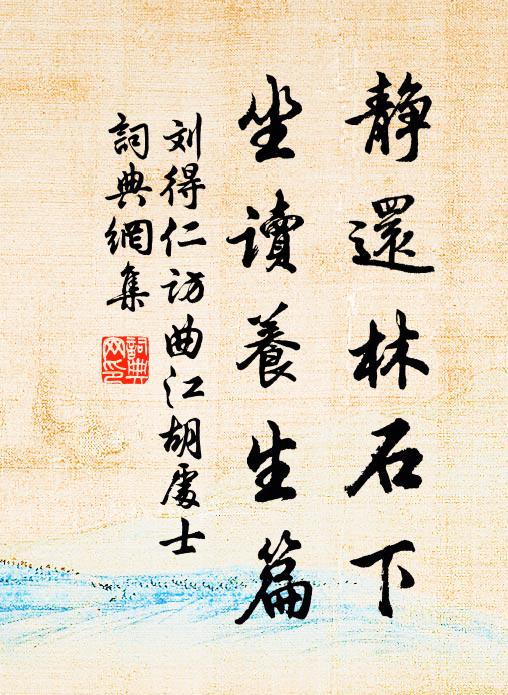 靜還林石下
坐讀養生篇
刘得仁访曲江胡處士
詞典網集
詞典網印